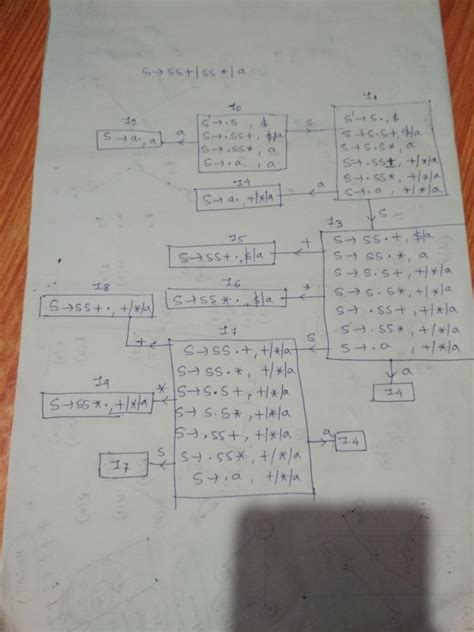 S→SS+|SS*|a
I0
S'→.S, $
S→.SS+, $/a
S→.SS*, a
S→.a, a
S
I1
S'→S., $
S→S.S+, $/a
S→S.S*, a
S→.SS+, +/*/a
S→.SS*, +/*/a
S→.a, +/*/a
a
I2
S→a., a
a
I4
S→a., +/*/a
S
I3
S→SS.+, $/a
S→SS.*, a
S→S.S+, +/*/a
S→S.S*, +/*/a
S→.SS+, +/*/a
S→.SS*, +/*/a
S→.a, +/*/a
+
I5
S→SS+., $/a
*
I6
S→SS*., $/a
a
I4
S
I7
S→SS.+, +/*/a
S→SS.*, +/*/a
S→S.S+, +/*/a
S→S.S*, +/*/a
S→.SS+, +/*/a
S→.SS*, +/*/a
S→.a, +/*/a
+
I8
S→SS+., +/*/a
*
I9
S→SS*., +/*/a
S
I7
a
I4